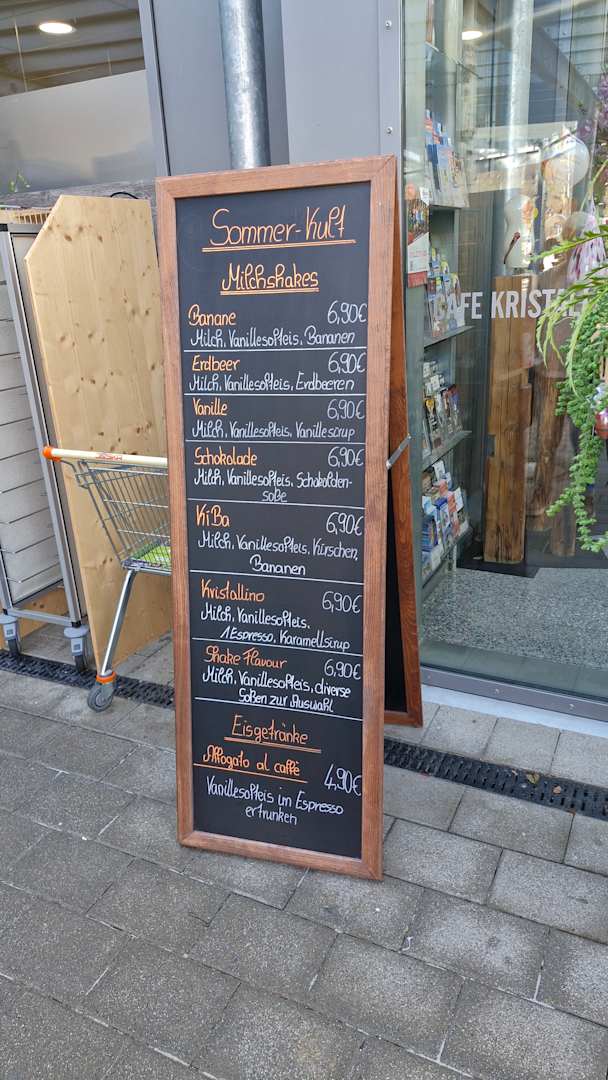 Sommer-Kult
Milchshakes
Banane 6,90€
Milch, Vanillesofteis, Bananen
Erdbeer 6,90€
Milch, Vanillesofteis, Erdbeeren
Vanille 6,90€
Milch, Vanillesofteis, Vanillesirup
Schokolade 6,90€
Milch, Vanillesofteis, Schokoladen-
soße
KiBa 6,90€
Milch, Vanillesofteis, Kirschen,
Bananen
Kristallino 6,90€
Milch, Vanillesofteis,
1 Espresso, Karamellsirup
Shake Flavour 6,90€
Milch, Vanillesofteis, diverse
Soßen zur Auswahl
Eisgetränke
Affogato al caffè 4,90€
Vanillesofteis im Espresso
ertrunken
CAFE KRISTAL